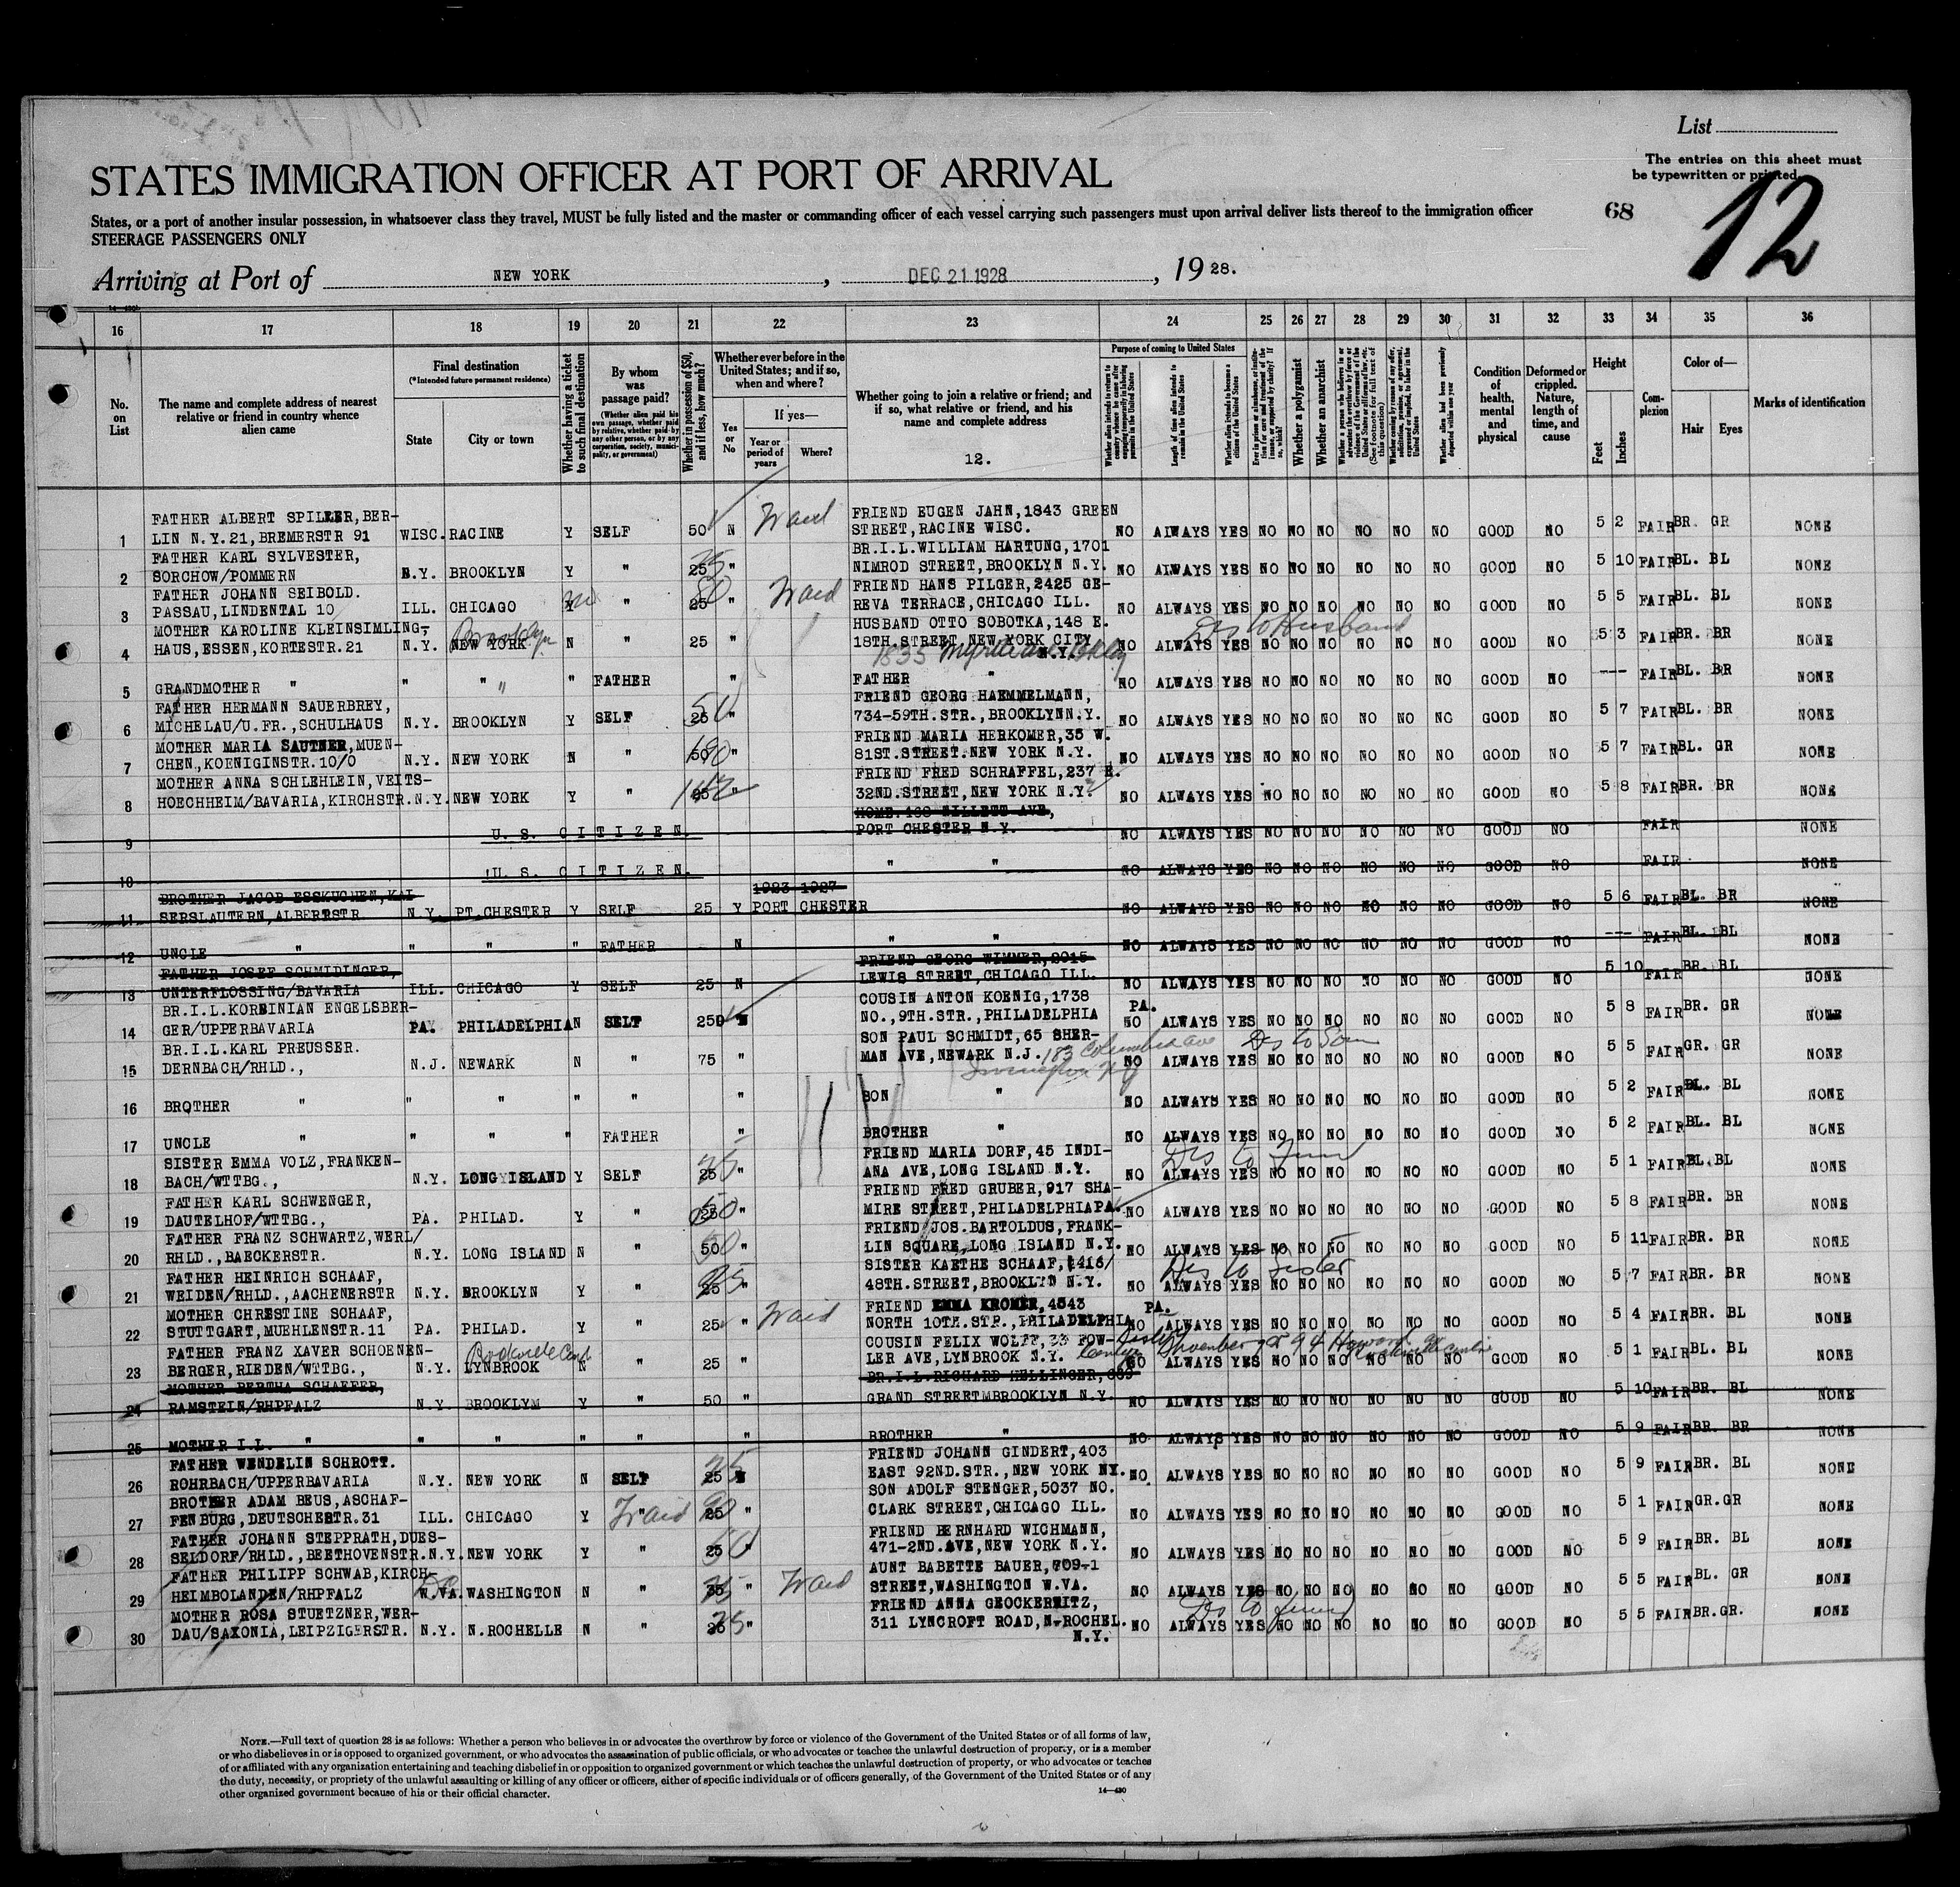 List
The entries on this sheet must
be typewritten or printed.
STATES IMMIGRATION OFFICER AT PORT OF ARRIVAL
68
12
States, or a port of another insular possession, in whatsoever class they travel, MUST be fully listed and the master or commanding officer of each vessel carrying such passengers must upon arrival deliver lists thereof to the immigration officer
STEERAGE PASSENGERS ONLY
Arriving at Port of NEW YORK, DEC 21 1928, 19 28.
16 17 18 19 20 21 22 23 24 25 26 27 28 29 30 31 32 33 34 35 36
No. on List
The name and complete address of nearest relative or friend in country whence alien came
Final destination
(*Intended future permanent residence)
State
City or town
Whether having a ticket to such final destination
By whom was passage paid?
(Whether alien paid his own passage, whether paid by relative, whether paid by any other person, or by any corporation, society, municipality, or government)
Whether in possession of $50, and if less, how much?
Whether ever before in the United States; and if so, when and where?
Yes or No
If yes—
Year or period of years
Where?
Whether going to join a relative or friend; and if so, what relative or friend, and his name and complete address
12.
Purpose of coming to United States
Length of time alien intends to remain in the United States
Whether alien intends to become a citizen of the United States
Whether a polygamist
Whether an anarchist
Condition of health, mental and physical
Deformed or crippled. Nature, length of time, and cause
Height
Feet
Inches
Complexion
Color of—
Hair
Eyes
Marks of identification
FATHER ALBERT SPILLER, BER-
1 LIN N.Y.21, BREMERSTR 91 WISC. RACINE Y SELF 50 N FRIEND EUGEN JAHN, 1843 GREEN
STREET, RACINE WISC. NO ALWAYS YES NO NO NO NO NO NO GOOD NO 5 2 FAIR BR. GR NONE
FATHER KARL SYLVESTER, BR.I.L. WILLIAM HARTUNG, 1701
2 SORCHOW/POMMERN N.Y. BROOKLYN Y " 25 " NIMROD STREET, BROOKLYN N.Y. NO ALWAYS YES NO NO NO NO NO NO GOOD NO 5 10 FAIR BL. BL NONE
FATHER JOHANN SEIBOLD. FRIEND HANS PILGER, 2425 GE-
3 PASSAU, LINDENTAL 10 ILL. CHICAGO Y " 25 " REVA TERRACE, CHICAGO ILL. NO ALWAYS YES NO NO NO NO NO NO GOOD NO 5 5 FAIR BL. BL NONE
MOTHER KAROLINE KLEINSIMLING- HUSBAND OTTO SOBOTKA, 148 E. Dis to Husband
4 HAUS, ESSEN, KORTESTR. 21 N.Y. NEW YORK Brooklyn N " 25 " 18TH. STREET, NEW YORK CITY N.Y. NO ALWAYS YES NO NO NO NO NO NO GOOD NO 5 3 FAIR BR. BR NONE
1835 Myrtle Ave Bklyn
5 GRANDMOTHER " " " " FATHER " FATHER " NO ALWAYS YES NO NO NO NO NO NO GOOD NO --- FAIR BL. BR NONE
FATHER HERMANN SAUERBREY, FRIEND GEORG HAEMMELMANN,
6 MICHELAU/U.FR., SCHULHAUS N.Y. BROOKLYN Y SELF 25 50 " 734-59TH. STR., BROOKLYN N.Y. NO ALWAYS YES NO NO NO NO NO NO GOOD NO 5 7 FAIR BL. BR NONE
MOTHER MARIA SAUTNER, MUEN- FRIEND MARIA HERKOMER, 35 W.
7 CHEN, KOENIGINSTR. 10/0 N.Y. NEW YORK N " 50 " 81ST. STREET. NEW YORK N.Y. NO ALWAYS YES NO NO NO NO NO NO GOOD NO 5 7 FAIR BL. GR NONE
MOTHER ANNA SCHLEHLEIN, VEITS- FRIEND FRED SCHRAFFEL, 237 E.
8 HOECHHEIM/BAVARIA, KIRCHSTR. N.Y. NEW YORK Y " " 32ND. STREET, NEW YORK N.Y. NO ALWAYS YES NO NO NO NO NO NO GOOD NO 5 8 FAIR BR. BR NONE
9 U. S. CITIZEN. PORT CHESTER N.Y. NO ALWAYS YES NO NO NO NO NO NO GOOD NO FAIR NONE
10 U. S. CITIZEN. " " NO ALWAYS YES NO NO NO NO NO NO GOOD NO FAIR NONE
BROTHER JACOB ESSKUCHEN, KAI 1923 1927
11 SERSLAUTERN, ALBERTSTR N.Y. PT. CHESTER Y SELF 25 Y PORT CHESTER NO ALWAYS YES NO NO NO NO NO NO GOOD NO 5 6 FAIR BL. BR NONE
12 UNCLE " " " " FATHER N " " NO ALWAYS YES NO NO NO NO NO NO GOOD NO --- FAIR BL. BL NONE
FATHER JOSEF SCHMIDINGER, FRIEND GEORG WIMMER, 2015
13 UNTERFLOSSING/BAVARIA ILL. CHICAGO Y SELF 25 N LEWIS STREET, CHICAGO ILL. NO ALWAYS YES NO NO NO NO NO NO GOOD NO 5 10 FAIR BR. BL NONE
BR.I.L. KORBINIAN ENGELSBER- COUSIN ANTON KOENIG, 1738 PA.
14 GER/UPPERBAVARIA PA. PHILADELPHIA N SELF 250 N NO., 9TH. STR., PHILADELPHIA NO ALWAYS YES NO NO NO NO NO NO GOOD NO 5 8 FAIR BR. GR NONE
BR.I.L. KARL PREUSSER. SON PAUL SCHMIDT, 65 SHER- Dis to Son
15 DERNBACH/RHLD., N.J. NEWARK N " 75 " MAN AVE, NEWARK N.J. 183 Columbia Ave NO ALWAYS YES NO NO NO NO NO NO GOOD NO 5 5 FAIR GR. GR NONE
Irvington NJ
16 BROTHER " " " " " " SON " NO ALWAYS YES NO NO NO NO NO NO GOOD NO 5 2 FAIR BL. BL NONE
17 UNCLE " " " " FATHER " BROTHER " NO ALWAYS YES NO NO NO NO NO NO GOOD NO 5 2 FAIR BL. BL NONE
SISTER EMMA VOLZ, FRANKEN- FRIEND MARIA DORF, 45 INDI-
18 BACH/WTTBG., N.Y. LONG ISLAND Y SELF 25 " ANA AVE, LONG ISLAND N.Y. NO ALWAYS YES NO NO NO NO NO NO GOOD NO 5 1 FAIR BL. BL NONE
FATHER KARL SCHWENGER, FRIEND FRED GRUBER, 917 SHA-
19 DAUTELHOF/WTTBG., PA. PHILAD. Y " 25 " MIRE STREET, PHILADELPHIA PA. NO ALWAYS YES NO NO NO NO NO NO GOOD NO 5 8 FAIR BR. BR NONE
FATHER FRANZ SCHWARTZ, WERL/ FRIEND JOS. BARTOLDUS, FRANK-
20 RHLD., BAECKERSTR. N.Y. LONG ISLAND N " 50 " LIN SQUARE, LONG ISLAND N.Y. NO ALWAYS YES NO NO NO NO NO NO GOOD NO 5 11 FAIR BR. BR NONE
FATHER HEINRICH SCHAAF, SISTER KAETHE SCHAAF, 1416/ Dis to Sister
21 WEIDEN/RHLD., AACHENERSTR N.Y. BROOKLYN Y " 25 " 48TH. STREET, BROOKLYN N.Y. NO ALWAYS YES NO NO NO NO NO NO GOOD NO 5 7 FAIR BR. BR NONE
MOTHER CHRESTINE SCHAAF, FRIEND EMMA KROMER, 4543 PA.
22 STUTTGART, MUEHLENSTR. 11 PA. PHILAD. Y " 25 NORTH 10TH. STR., PHILADELPHIA NO ALWAYS YES NO NO NO NO NO NO GOOD NO 5 4 FAIR BR. BL NONE
FATHER FRANZ XAVER SCHOENEN- COUSIN FELIX WOLFF, 33 FOW-
23 BERGER, RIEDEN/WTTBG., N.Y. LYNBROOK N " 25 " LER AVE, LYNBROOK N.Y. NO ALWAYS YES NO NO NO NO NO NO GOOD NO 5 1 FAIR BL. BL NONE
MOTHER BERTHA SCHAEFER, BR.I.L. RICHARD HELLINGER, 689
24 RAMSTEIN/RHPFALZ N.Y. BROOKLYM Y " 50 " GRAND STREETMBROOKLYN N.Y. NO ALWAYS YES NO NO NO NO NO NO GOOD NO 5 10 FAIR BR. BL NONE
25 MOTHER I.L. " " " " " " BROTHER " NO ALWAYS YES NO NO NO NO NO NO GOOD NO 5 9 FAIR BR. BR NONE
FATHER WENDELIN SCHROTT. FRIEND JOHANN GINDERT, 403
26 ROHRBACH/UPPERBAVARIA N.Y. NEW YORK N SELF 25 N EAST 92ND. STR., NEW YORK NY. NO ALWAYS YES NO NO NO NO NO NO GOOD NO 5 9 FAIR BR. BL NONE
BROTHER ADAM BEUS, ASCHAF- SON ADOLF STENGER, 5037 NO.
27 FENBURG, DEUTSCHESTR. 31 ILL. CHICAGO Y " 25 " CLARK STREET, CHICAGO ILL. NO ALWAYS YES NO NO NO NO NO NO GOOD NO 5 1 FAIR GR. GR NONE
FATHER JOHANN STEPPRATH, DUES- FRIEND BERNHARD WICHMANN,
28 SELDORF/RHLD., BEETHOVENSTR. N.Y. NEW YORK Y " 25 " 471-2ND. AVE, NEW YORK N.Y. NO ALWAYS YES NO NO NO NO NO NO GOOD NO 5 9 FAIR BR. BL NONE
FATHER PHILIPP SCHWAB, KIRCH- AUNT BABETTE BAUER, 709-1
29 HEIMBOLANDEN/RHPFALZ W.VA. WASHINGTON N " " STREET, WASHINGTON W.VA. NO ALWAYS YES NO NO NO NO NO NO GOOD NO 5 5 FAIR BL. GR NONE
MOTHER ROSA STUETZNER, WER- FRIEND ANNA GEOCKERNITZ,
30 DAU/SAXONIA, LEIPZIGERSTR. N.Y. N. ROCHELLE N " " 311 LYNCROFT ROAD, N-ROCHEL. NO ALWAYS YES NO NO NO NO NO NO GOOD NO 5 5 FAIR BR. GR. NONE
N.Y.
NOTE.—Full text of question 28 is as follows: Whether a person who believes in or advocates the overthrow by force or violence of the Government of the United States or of all forms of law,
or who disbelieves in or is opposed to organized government, or who advocates the assassination of public officials, or who advocates or teaches the unlawful destruction of property, or is a member
of or affiliated with any organization entertaining and teaching disbelief in or opposition to organized government or which teaches the unlawful destruction of property, or who advocates or teaches
the duty, necessity, or propriety of the unlawful assaulting or killing of any officer or officers, either of specific individuals or of officers generally, of the Government of the United States or of any
other organized government because of his or their official character.
14—430